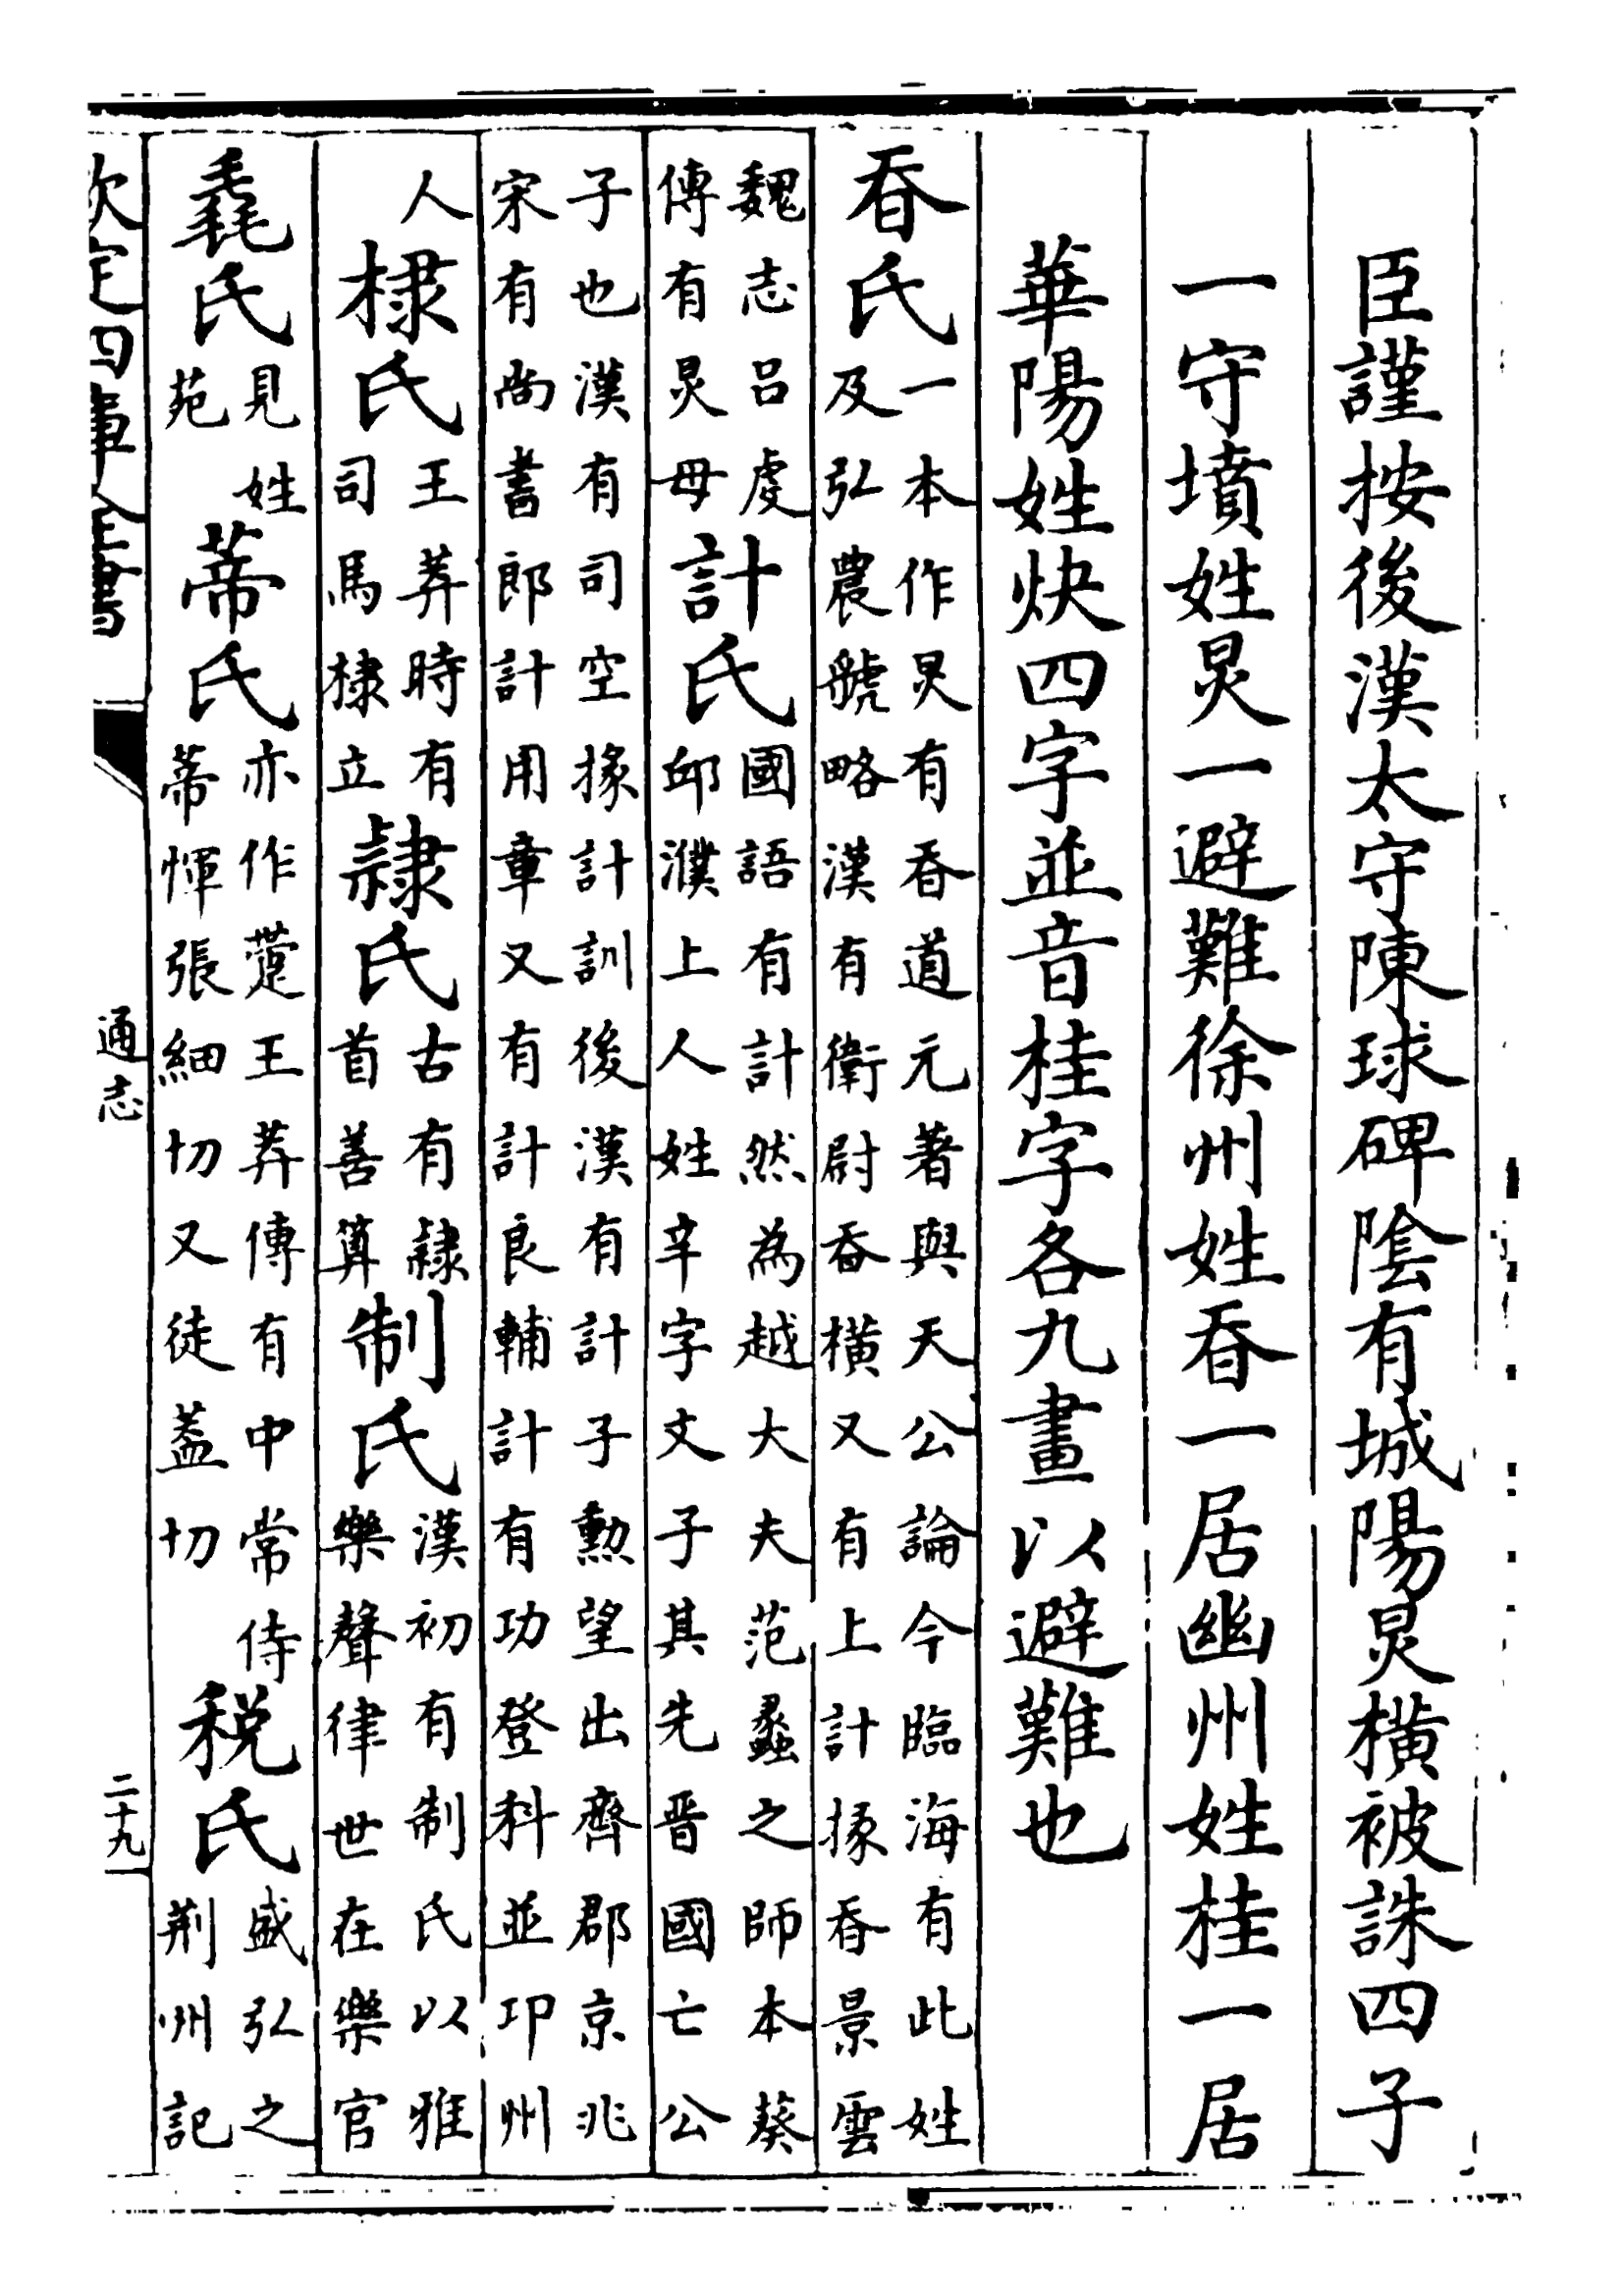 臣謹按後漢太守陳球碑隂有城陽炅橫被誅四子
一守墳姓炅一避難徐州姓昋一居幽州姓桂一居
華陽姓炔四字並音桂字各九畫以避難也
昋氏一本作炅有昋道元著與天公論今臨海有此姓
及弘農虢略漢有衛尉昋橫又有上計掾昋景雲
魏志呂虔
傳有炅母
計氏國語有計然為越大夫范蠡之師本葵
邱濮上人姓辛字文子其先晋國亡公
子也漢有司空掾計訓後漢有計子勲望出齊郡京兆
宋有尚書郎計用章又有計良輔計有功登科並邛州
人
棣氏王莽時有
司馬棣立
隷氏古有隷
首善算
制氏漢初有制氏以雅
樂聲律世在樂官
毳氏見姓
苑
蔕氏亦作王莽傳有中常侍
蔕惲張細切又徒蓋切
税氏盛弘之
荆州記
欽定四庫全書
通志
二十九